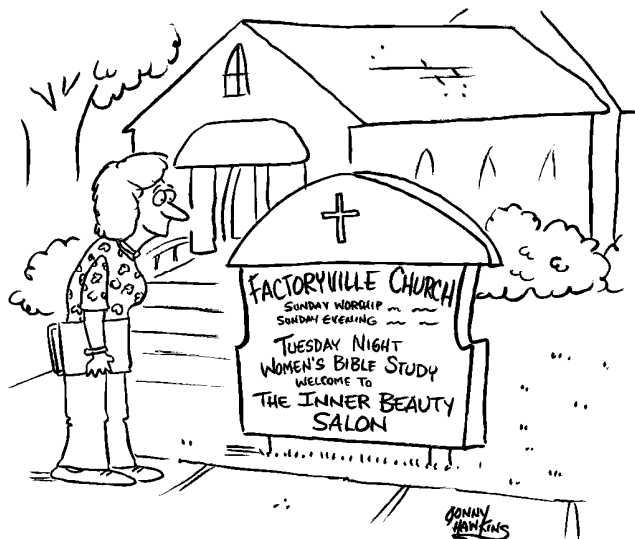 FACTORYVILLE CHURCH
SUNDAY WORSHIP
SUNDAY EVENING
TUESDAY NIGHT
WOMEN'S BIBLE STUDY
WELCOME TO
THE INNER BEAUTY
SALON
JONNY
HAWKINS